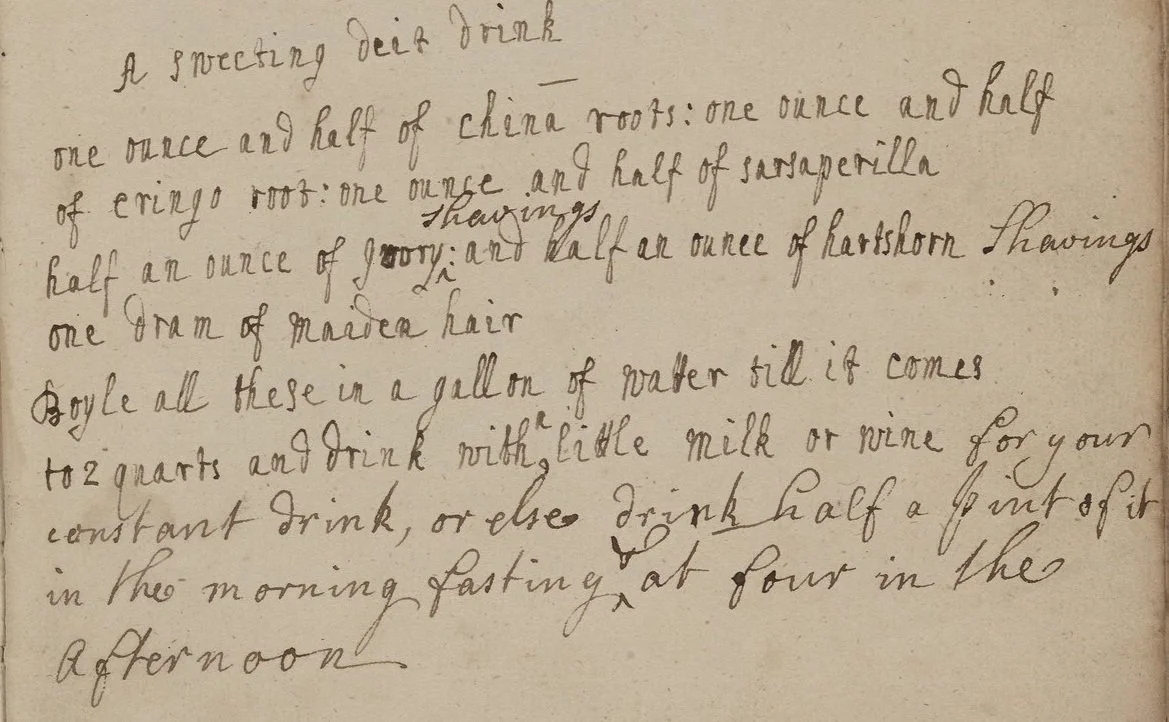 A sweeting deit drink
one ounce and half of china roots: one ounce and half
of eringo root: one ounce and half of sarsaperilla
shavings
half an ounce of Ivory: and half an ounce of hartshorn Shavings
one dram of maiden hair
Boyle all these in a gallon of watter till it comes
to 2 quarts and drink with a little milk or wine for your
constant drink, or else drink half a pint of it
in the morning fasting & at four in the
Afternoon